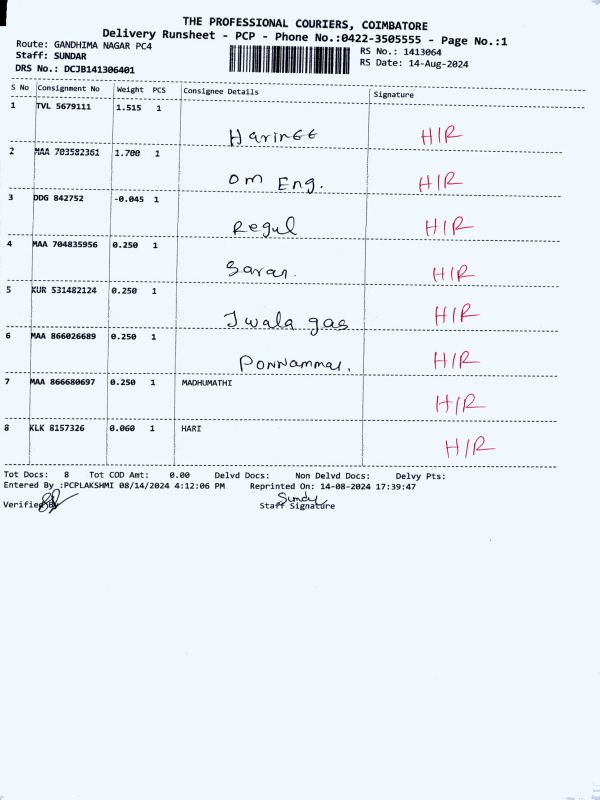 THE PROFESSIONAL COURIERS, COIMBATORE
Delivery Runsheet - PCP - Phone No.:0422-3505555 - Page No.:1
Route: GANDHIMA NAGAR PC4 RS No.: 1413064
Staff: SUNDAR RS Date: 14-Aug-2024
DRS No.: DCJB141306401
S No Consignment No Weight PCS Consignee Details Signature
1 TVL 5679111 1.515 1
HarinEE H/R
2 MAA 703582361 1.700 1
Om Eng. H/R
3 DDG 842752 -0.045 1
Regul H/R
4 MAA 704835956 0.250 1
Saran. H/R
5 KUR 531482124 0.250 1
Jwala gas H/R
6 MAA 866026689 0.250 1
Ponnammal. H/R
7 MAA 866680697 0.250 1 MADHUMATHI
H/R
8 KLK 8157326 0.060 1 HARI
H/R
Tot Docs: 8 Tot COD Amt: 0.00 Delvd Docs: Non Delvd Docs: Delvy Pts:
Entered By :PCPLAKSHMI 08/14/2024 4:12:06 PM Reprinted On: 14-08-2024 17:39:47
Sundy
Verified By Staff Signature